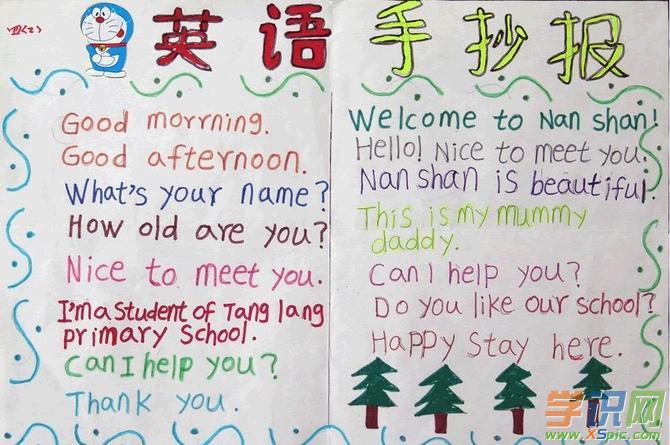 四(2)
英语手抄报
Good morrning.
Good afternoon.
What's your name?
How old are you?
Nice to meet you.
I'm a student of Tang lang
primary School.
Can I help you?
Thank you.
Welcome to Nan shan!
Hello! Nice to meet you.
Nan shan is beautiful.
This is my mummy
daddy.
Can I help you?
Do you like our school?
Happy Stay here.
学识网
www.XSpic.com